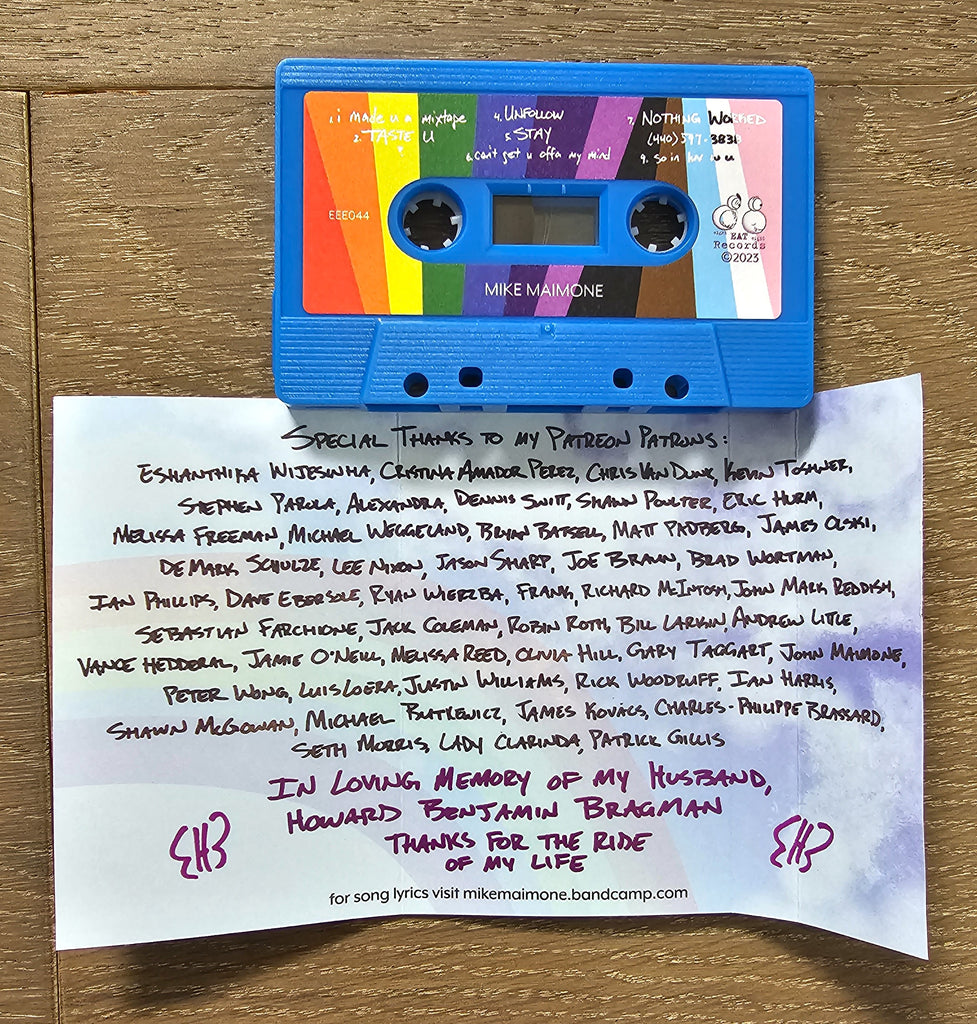 1. i made u a mixtape
2. TASTE U
4. UNFOLLOW
5. STAY
6. can't get u offa my mind
7. NOTHING WORKED
(440) 597-3838
9. so in luv w u
EEE044
EAT
Records
©2023
MIKE MAIMONE
SPECIAL THANKS TO MY PATREON PATRONS:
ESHANTHIKA WIJESINHA, CRISTINA AMADOR PEREZ, CHRIS VAN DUNK, KEVIN TOSHNER,
STEPHEN PAROLA, ALEXANDRA, DENNIS SUTT, SHAWN POULTER, ERIC HURM,
MELISSA FREEMAN, MICHAEL WEGGELAND, BRYAN BATSELL, MATT PADBERG, JAMES OLSKI,
DEMARK SCHULZE, LEE NIXON, JASON SHARP, JOE BRAUN, BRAD WORTMAN,
IAN PHILLIPS, DAVE EBERSOLE, RYAN WIERZBA, FRANK, RICHARD MCINTOSH, JOHN MARK REDDISH,
SEBASTIAN FARCHIONE, JACK COLEMAN, ROBIN ROTH, BILL LARKIN, ANDREW LITLE,
VANCE HEDDERAL, JAMIE O'NEILL, MELISSA REED, OLIVIA HILL, GARY TAGGART, JOHN MAIMONE,
PETER WONG, LUIS LOERA, JUSTIN WILLIAMS, RICK WOODRUFF, IAN HARRIS,
SHAWN MCGOWAN, MICHAEL BUTKEWICZ, JAMES KOVACS, CHARLES-PHILIPPE BRASSARD,
SETH MORRIS, LADY CLARINDA, PATRICK GILLIS
IN LOVING MEMORY OF MY HUSBAND,
HOWARD BENJAMIN BRAGMAN
THANKS FOR THE RIDE
OF MY LIFE
for song lyrics visit mikemaimone.bandcamp.com